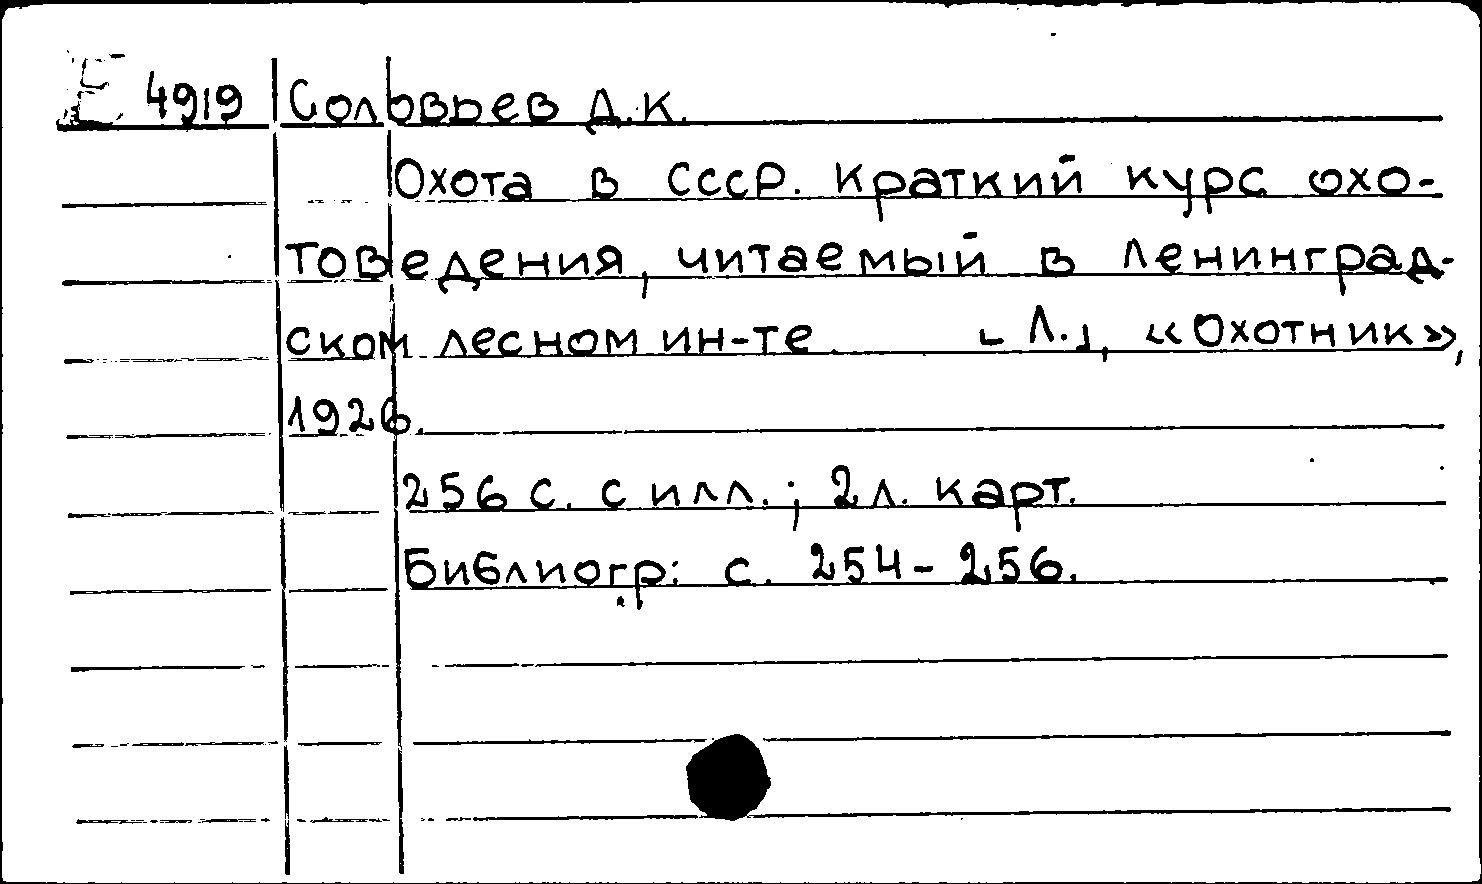 Е 4919 Соловьев Д.К.
Охота в СССР. Краткий курс охо-
товедения, читаемый в Ленинград-
ском лесном ин-те. [Л.], «Охотник»,
1926.
256 с. с илл.; 2 л. карт.
Библиогр: с. 254-256.